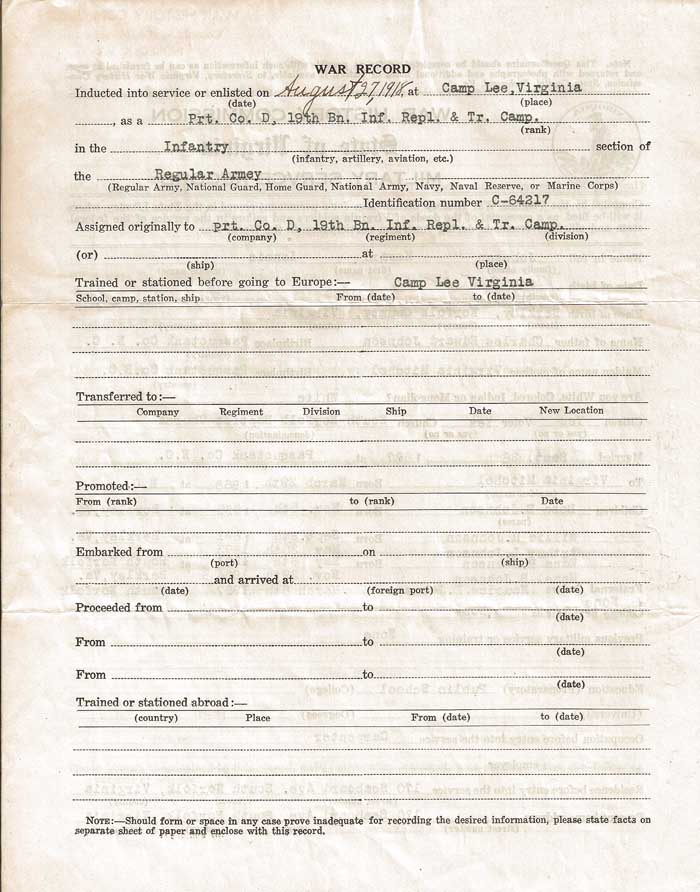 WAR RECORD
Inducted into service or enlisted on August 27, 1918, at Camp Lee, Virginia
(date) (place)
, as a Prt. Co. D, 19th Bn. Inf. Repl. & Tr. Camp.
(rank)
in the Infantry section of
(infantry, artillery, aviation, etc.)
the Regular Armey
(Regular Army, National Guard, Home Guard, National Army, Navy, Naval Reserve, or Marine Corps)
Identification number C-64217
Assigned originally to prt. Co. D, 19th Bn. Inf. Repl. & Tr. Camp.
(company) (regiment) (division)
(or) at
(ship) (place)
Trained or stationed before going to Europe:— Camp Lee Virginia
School, camp, station, ship From (date) to (date)
Transferred to:—
Company Regiment Division Ship Date New Location
Promoted:—
From (rank) to (rank) Date
Embarked from on
(port) (ship)
and arrived at
(date) (foreign port) (date)
Proceeded from to
(date)
From to
(date)
From to
(date)
Trained or stationed abroad:—
(country) Place From (date) to (date)
NOTE:—Should form or space in any case prove inadequate for recording the desired information, please state facts on
separate sheet of paper and enclose with this record.